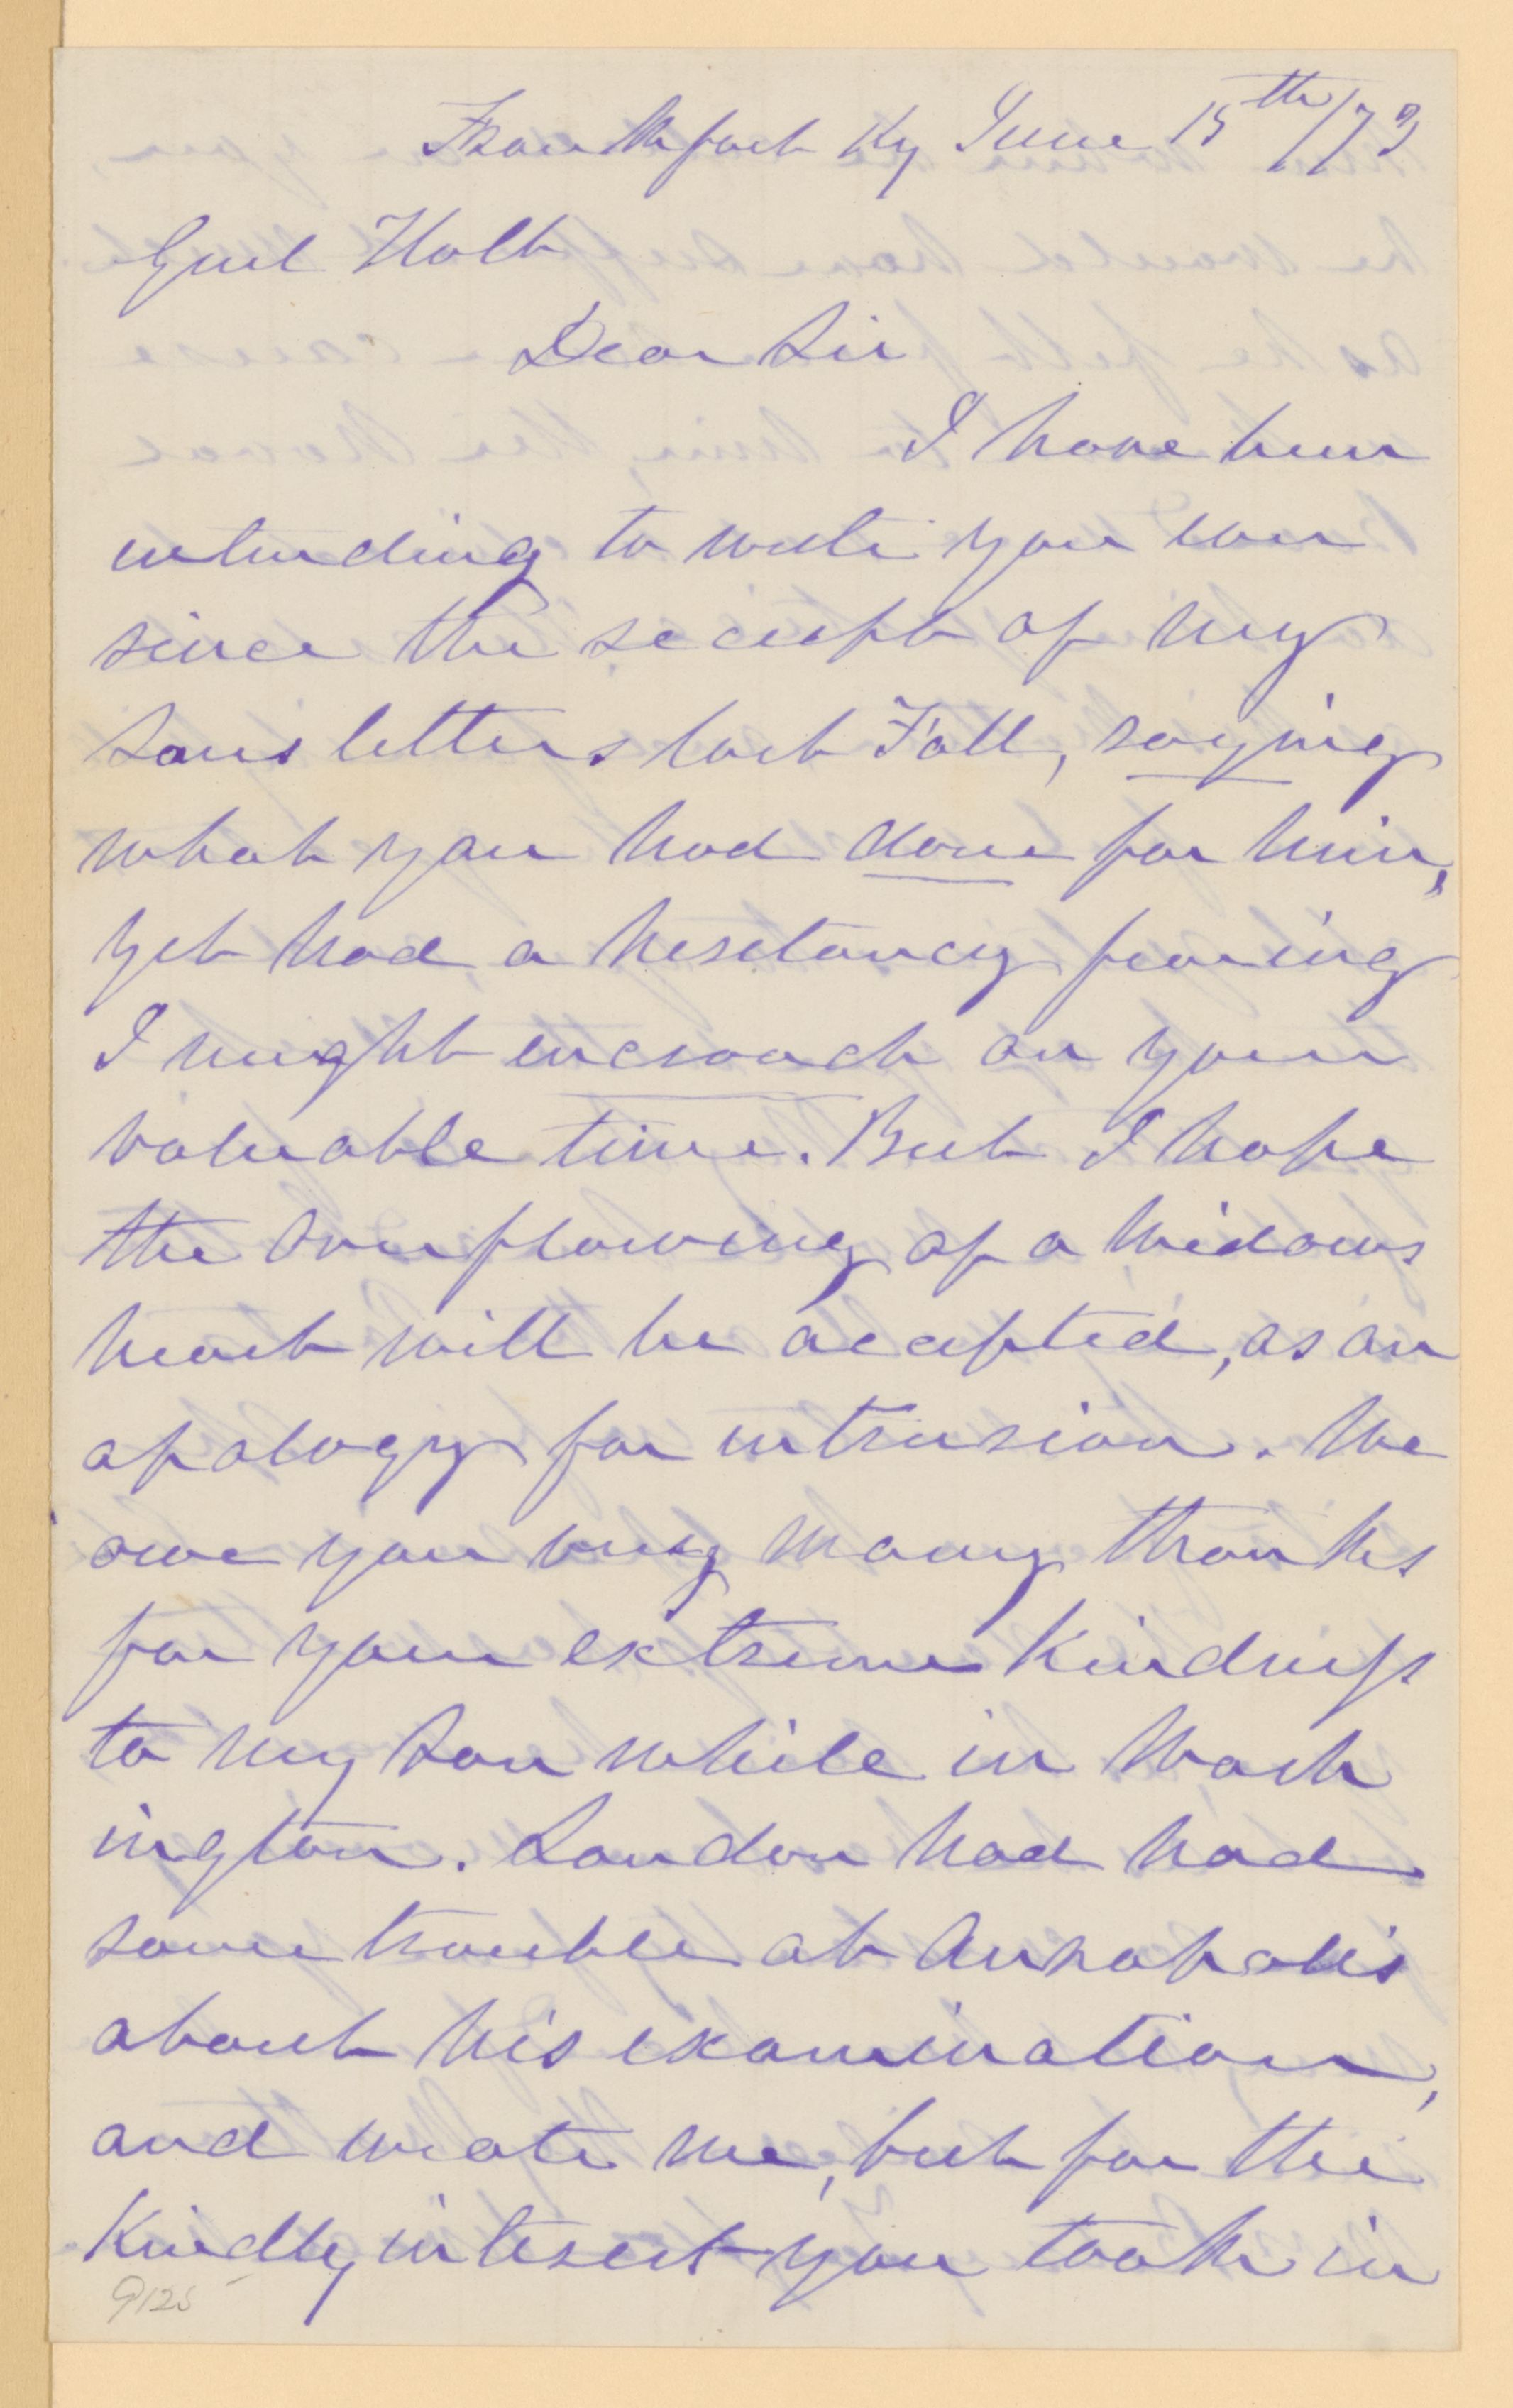 Frankfort Ky June 15th/73
Genl Holt
Dear Sir
I have been
intending to write you ever
since the reciept of my
Sons letters last Fall, saying
what you had done for him,
yet had a hesitancy fearing
I might encroach on your
valuable time. But I hope
the overflowing of a widows
heart will be accepted, as an
apology for intrusion. We
owe you very many thanks
for your extreme Kindness
to my Son while in Wash
ington. Landon had had
some trouble at Annapolis
about his examination,
and wrote me, but for the
Kindly interest you took in
9125